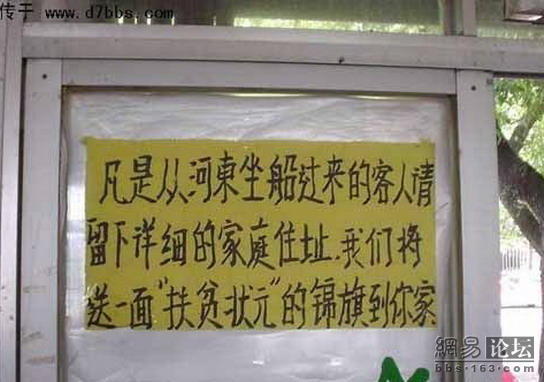 传于 www.d7bbs.com
凡是从河東坐船过来的客人请
留下详细的家庭住址.我们将
送一面"扶贫状元"的锦旗到你家
網易论坛
bbs.163.com